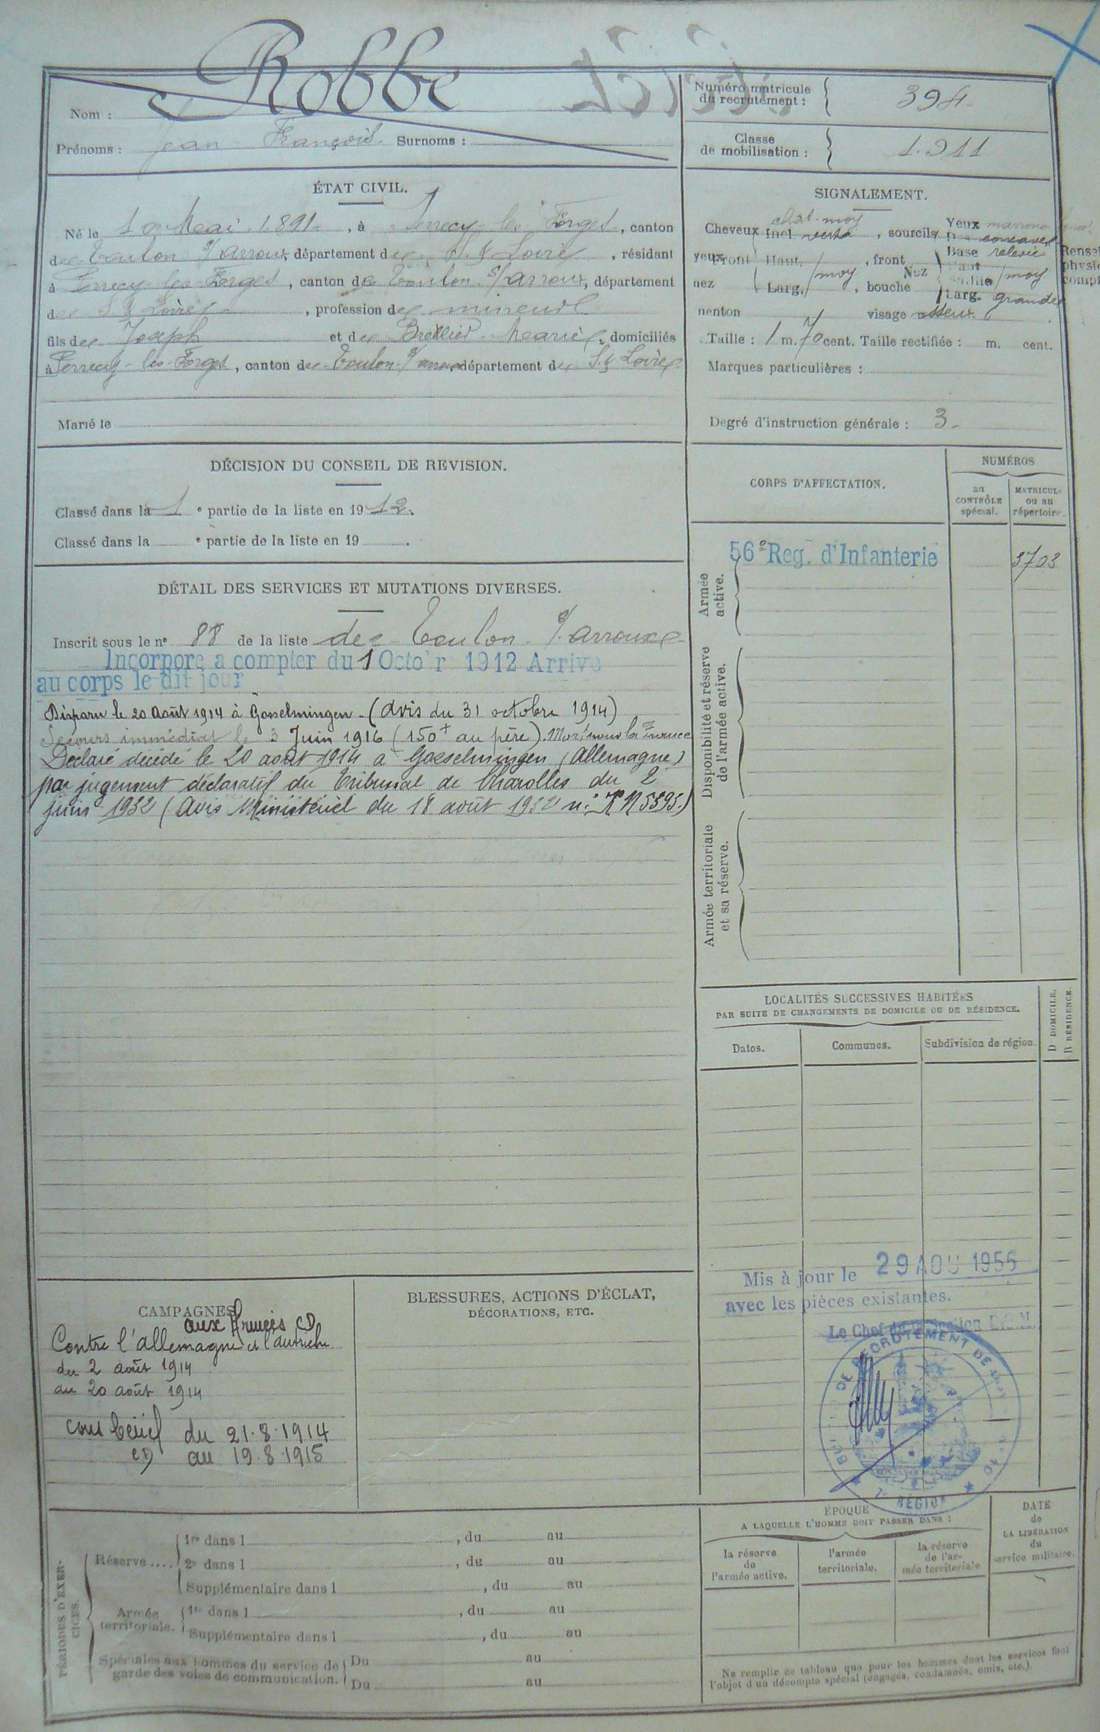 Robbe
Nom :
Prénoms : Jean François Surnoms :
Numéro matricule du recrutement : 394
Classe de mobilisation : 1.911
ÉTAT CIVIL.
Né le 10 Mai 1891, à Perrecy les Forges, canton
de Toulon s/ arroux, département de S. & Loire, résidant
à Perrecy-les-Forges, canton de Toulon s/arroux, département
de S & Loire, profession de mineur
fils de Joseph et de Marie, domiciliés
à Perrecy-les-Forges, canton de Toulon s/ département de S & Loire
Marié le
SIGNALEMENT.
Cheveux chat-moy , sourcils
Yeux
Incl. Dos
yeux Front Haut. , front Base relevé
Haut
nez Larg. moy , bouche Nez moy
Larg. grande
menton visage
Taille : 1 m. 70 cent. Taille rectifiée : m. cent.
Marques particulières :
Degré d'instruction générale : 3.
Rensei
physio
compl
DÉCISION DU CONSEIL DE REVISION.
Classé dans la 1 e partie de la liste en 1912.
Classé dans la e partie de la liste en 19 .
CORPS D'AFFECTATION.
NUMÉROS
au CONTRÔLE spécial.
MATRICULE ou au répertoire.
Armée active.
56e Reg. d'Infanterie 3703
Disponibilité et réserve de l'armée active.
Armée territoriale et sa réserve.
DÉTAIL DES SERVICES ET MUTATIONS DIVERSES.
Inscrit sous le n° 88 de la liste de Toulon s/ arroux
Incorporé a compter du 1 Octo'r 1912 Arrivé
au corps le dit jour
Disparu le 20 Août 1914 à Gosselmingen - (avis du 31 octobre 1914)
Secours immédiat le 3 Juin 1916 (150f au père). Mort pour la France
Déclaré décédé le 20 août 1914 à Gosselmingen (Allemagne)
par jugement déclaratif du Tribunal de Charolles du 2
juin 1932 (Avis Ministériel du 18 août 1932
LOCALITÉS SUCCESSIVES HABITÉES
PAR SUITE DE CHANGEMENTS DE DOMICILE OU DE RÉSIDENCE.
Dates.
Communes.
Subdivision de région.
D DOMICILE.
R RÉSIDENCE.
Mis à jour le 29 AOU 1956
avec les pièces existantes.
CAMPAGNES
aux Armées CD
Contre l'allemagne et l'autriche
du 2 août 1914
au 20 août 1914
du 21.8.1914
CD au 19.8.1915
BLESSURES, ACTIONS D'ÉCLAT,
DÉCORATIONS, ETC.
DE RECRUTEMENT DE
RÉGION
PÉRIODES D'EXERCICES.
Réserve ....
1re dans l , du au
2e dans l , du au
Supplémentaire dans l , du au
Armée territoriale.
1re dans l , du au
Supplémentaire dans l , du au
Spéciales aux hommes du service de
garde des voies de communication.
Du au
Du au
ÉPOQUE
A LAQUELLE L'HOMME DOIT PASSER DANS :
la réserve de l'armée active.
l'armée territoriale.
la réserve de l'armée territoriale
DATE de LA LIBÉRATION du service militaire.
Ne remplir ce tableau que pour les hommes dont les services font
l'objet d'un décompte spécial (engagés, condamnés, omis, etc.).